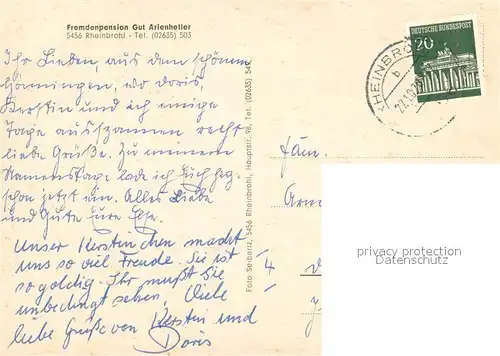 Fremdenpension Gut Arienheller
5456 Rheinbrohl - Tel. (02635) 503
Ihr Lieben, aus dem schönen
Hönningen, wo Doris,
Kerstin und ich einige
Tage ausspannen recht
liebe Grüße. Zu meinem
Namenstage lade ich Euch herz.
schon jetzt ein. Alles Liebe
und Gute Eure
Unser Kerstinchen macht
uns so viel Freude. Sie ist
so goldig. Ihr müßt Sie
unbedingt sehen. Viele
liebe Grüße von Kerstin und
Doris
Foto Seibertz, 5456 Rheinbrohl, Hauptstr. 98, Tel. (02635)
DEUTSCHE BUNDESPOST
20
RHEINBRO
b
Fam.
4
privacy protection
Datenschutz